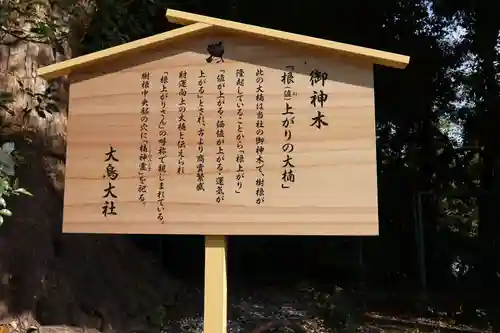 御神木
『根(値)上がりの大楠』
此の大楠は当社の御神木で、樹根が
隆起していることから「根上がり」
(値が上がる・価値が上がる・運気が
上がる)とされ、古より商売繁盛
財運向上の大楠と伝えられ
『根上がりさん』の呼称で親しまれている。
樹根中央経の穴に「楠神霊」を祀る。
大鳥大社